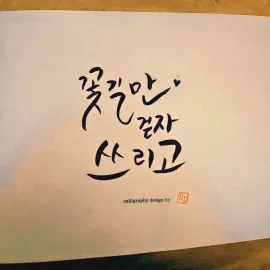 꽃길만
걷자
쓰리고
calligraphy design by